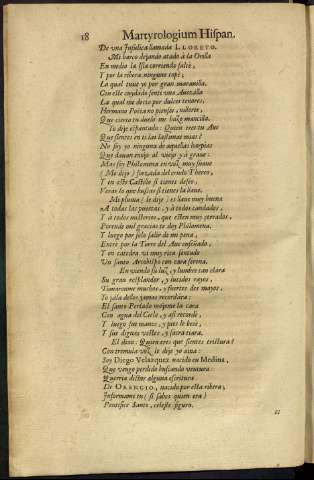 18 Martyrologium Hispan.
De vna Insulica llamada LLORETO.
Mi barco dejando atado à la Orilla
En medio la Isla corriendo saltè,
Y por la ribera ninguno topè;
La qual tuve yo por gran maravilla.
Con este cuydado senti vna Auezilla
La qual me decia por dulces tenores,
Hermano no pienses, nilores,
Que cierto tu duelo me haze mancilla.
Yo dije espantado: Quien eres tu Aue
Que sientes en ti las lastimas mias?
No soy yo ninguna de aquellas harpias
Que dauan enojo al viejo y à graue:
Mas soy Philomena en voz muy suaue
(Me dijo) forzada del crudo Thereo,
Y en este Castillo si tienes deseo,
Veràs lo que buscas si tienes la llaue.
Mi pluma (le dije) es llaue muy buena
A todas las puertas, y à todos candados,
Y à todos misterios, que esten muy cerrados,
Porende mil gracias te doy Philomena.
Y luego por solo salir de mi pena,
Entrè por la Torre del Aue enseñado,
Y en catedra vi muy rica sentado
Un santo Arçobispo con cara serena.
En viendo su luz, y lumbre tan clara
Su gran resplandor, y lucidos rayos,
Tomaronme muchos, y fuertes desmayos,
Yo jàla dellos jamas recordàra:
El santo Perlado mojome la cara
Con agua del Cielo, y assi recordè,
Y luego sus manos, y pies le besè,
Y sus dignas vestes, y sacra tiara.
El dixo: Quien eres que sientes tristura?
Con tremula voz le dije yo aina:
Soy Diego Velazquez nacido en Medina,
Que vengo perdido buscando ventura:
Querria deciros alguna escritura
De ORENCIO, nacido por esta ribera;
Informame tu (si sabes quien era)
Pontifice Santo, celeste figura.
El